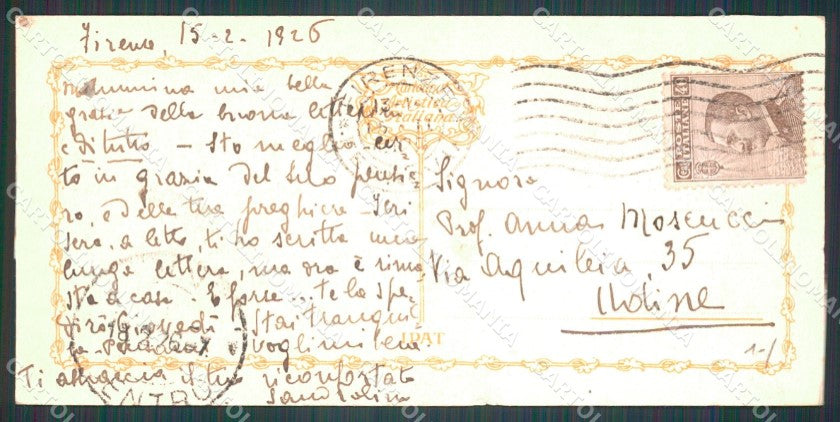 Firenze, 15-2-1926
Mammina mia bella
grazie della buona lettera
e di tutto - Sto meglio cer
to in grazia del tuo pensie
ro, e delle tue preghiere - Ieri
sera, a letto, ti ho scritto una
lunga lettera, ma ora è rima
sta a casa. E forse... te la spe
dirò Giovedì - Stai tranquil
la e voglimi bene
Ti abbraccia il tuo riconfortato
Sandrolino
FIRENZE
Signora
Prof. Anna Moscucci
Via Aquileia, 35
Udine
IDAT
1-/
CARTOLINOMANIA